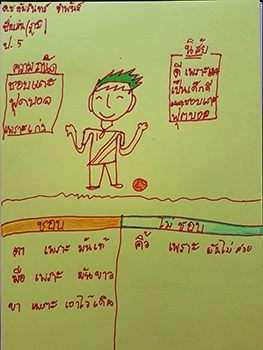 ป. 5
ความถนัด
ชอบเตะ
ฟุตบอล
เพราะเก่ง
นิสัย
ดี เพราะ
เป็นเด็กดี
ชอบเตะ
ฟุตบอล
ชอบ
ไม่ชอบ
ตา เพราะ มันเท่
มือ เพราะ มันขาว
ขา เพราะ เอาไว้เดิน
คิ้ว เพราะ มันไม่สวย